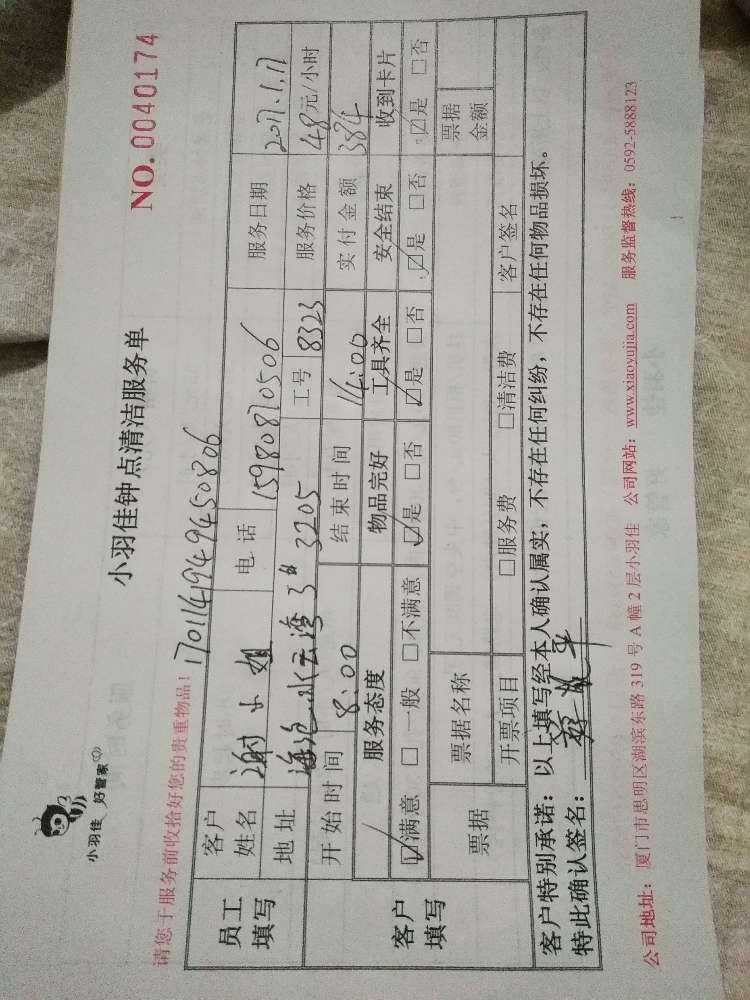 小羽佳 好管家
小羽佳钟点清洁服务单
NO.0040174
请您于服务前收拾好您的贵重物品！
17011494949450806
员工填写 客户姓名 谢小姐 电话 15980810506 服务日期 2017.1.17
地址 海沧水云湾3# 3205 工号 8323 服务价格 48元/小时
客户填写 开始时间 8:00 结束时间 14:00 实付金额 384
服务态度 物品完好 工具齐全 安全结束 收到卡片
☑满意 □一般 □不满意 ☑是 □否 ☑是 □否 ☑是 □否 ☑是 □否
票据 票据名称 票据金额
开票项目 □服务费 □清洁费 客户签名
客户特别承诺：以上填写经本人确认属实，不存在任何纠纷，不存在任何物品损坏。
特此确认签名：
公司地址：厦门市思明区湖滨东路319号A幢2层小羽佳 公司网站：www.xiaoyujia.com 服务监督热线：0592-5888123